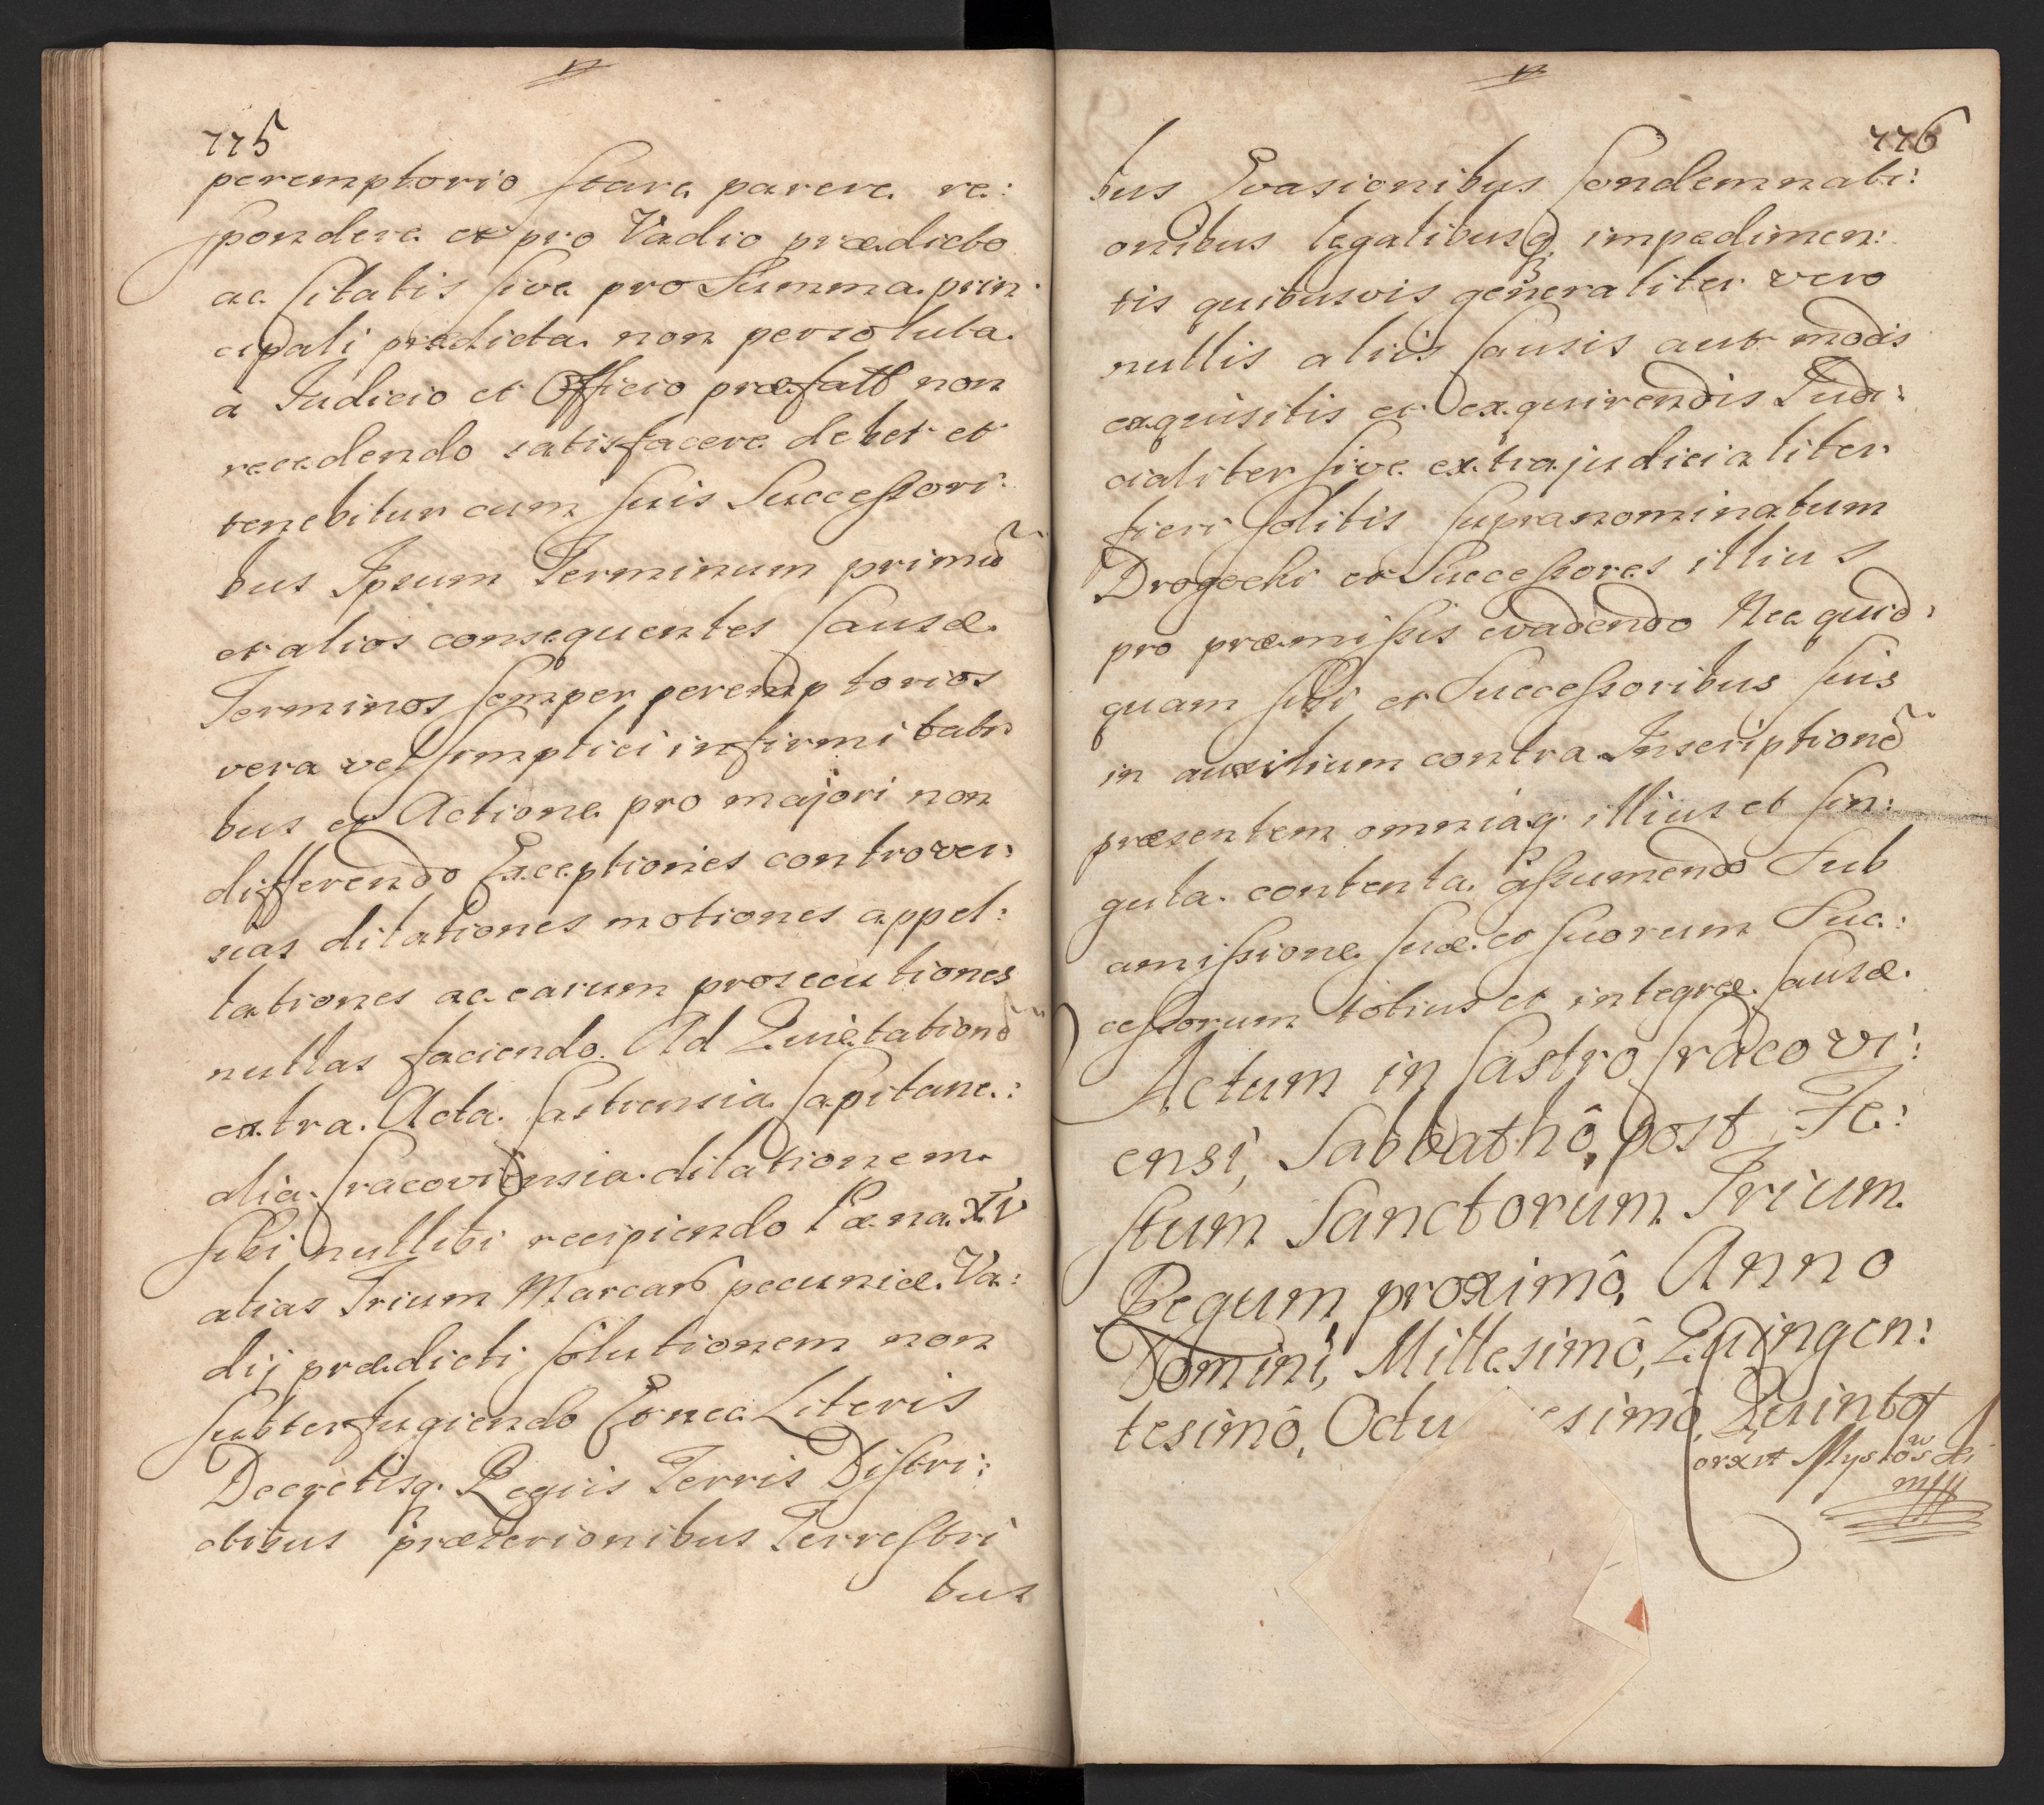 775
peremptorio stare parere re:
spondere et pro Vadio prædicto
ac Citatis sive pro Summa prin:
cipali prædicta non persoluta
a Iudicio et Officio præfatt non
recedendo satisfacere debet et
tenebitur cum suis Successori:
bus Ipsum Terminum primũ
et alios consequentes Causæ
Terminos semper peremptorios
vera vel simplici infirmitati
bus et Actione pro majori non
differendo Exceptiones controver:
sias dilationes motiones appel:
lationes ac earum prosecutiones
nullas faciendo Ad Quietationẽ
extra Acta Castrensia Capitane:
alia Cracoviensia dilationem
sibi nullibi recipiendo Pœna XIV
alias Trium Marcarũ pecuniæ Va:
dij prædicti solutionem non
subterfugiendo Et nec Literis
Decretisq. Regiis Terris Distri:
ctibus præscriptionibus Terrestri
bus
776
bus Evasionibus Condemnati:
onibus legalibusq impedimen:
tis quibusvis generaliter vero
nullis aliis Causis aut modis
exquisitis et exquirendis Iudi:
cialiter sive extrajudicialiter
fieri solitis supranominatum
Drogochi et Successores illius
pro præmissis evadendo Nec quid:
quam sibi et Successoribus suis
in auxilium contra Inscriptionẽ
præsentem omniaq. illius et sin:
gula contenta assumendo Sub
amissione suæ et suorum Suc:
cessorum totius et integræ Causæ.
Actum in Castro Cracovi:
ensi, Sabbathô, post Fe:
stum Sanctorum Trium
Regum proximô, Anno
Domini, Millesimô, Quingen:
tesimô, Octu esimô, Quintô